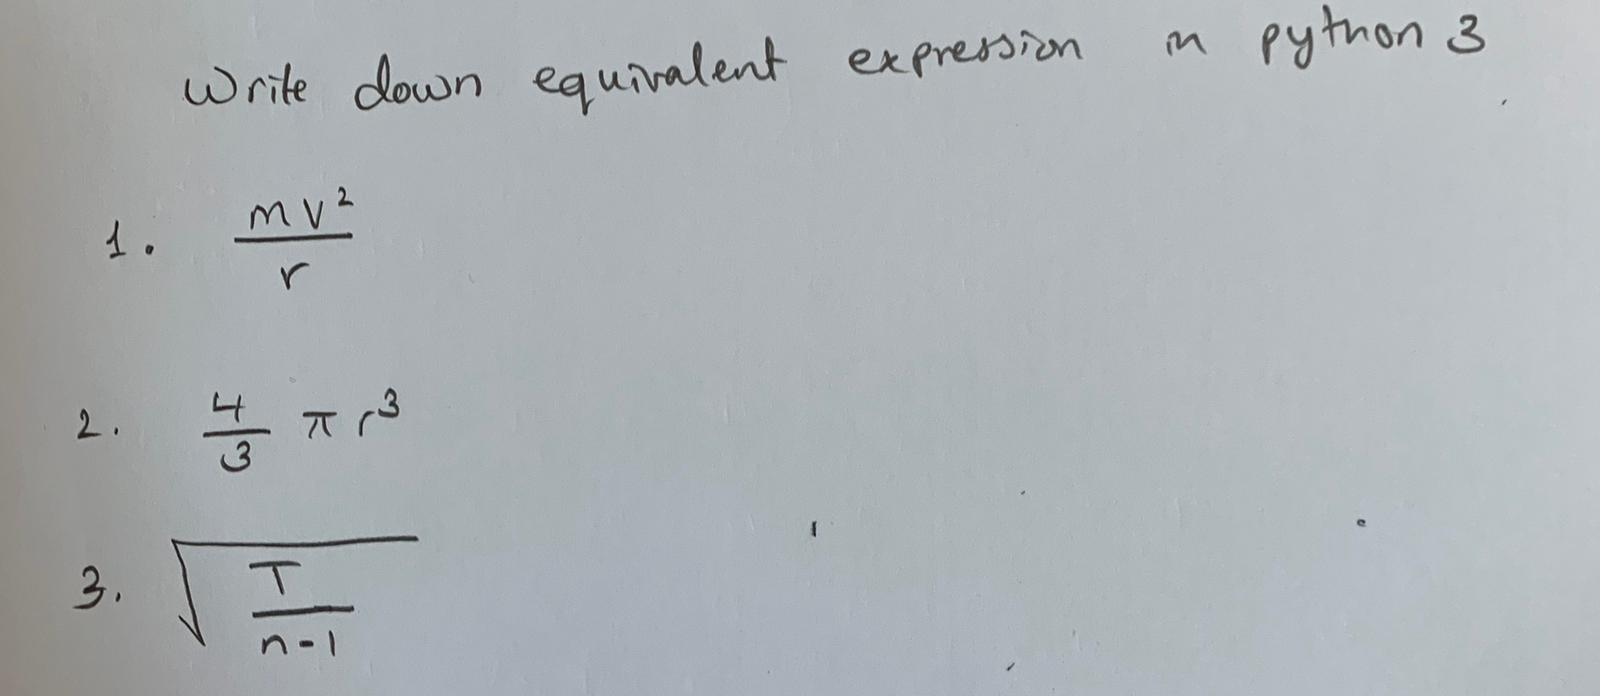 Write down equivalent expression in python 3
1. mv²/r
2. 4/3 πr³
3. √(T/(n-1))